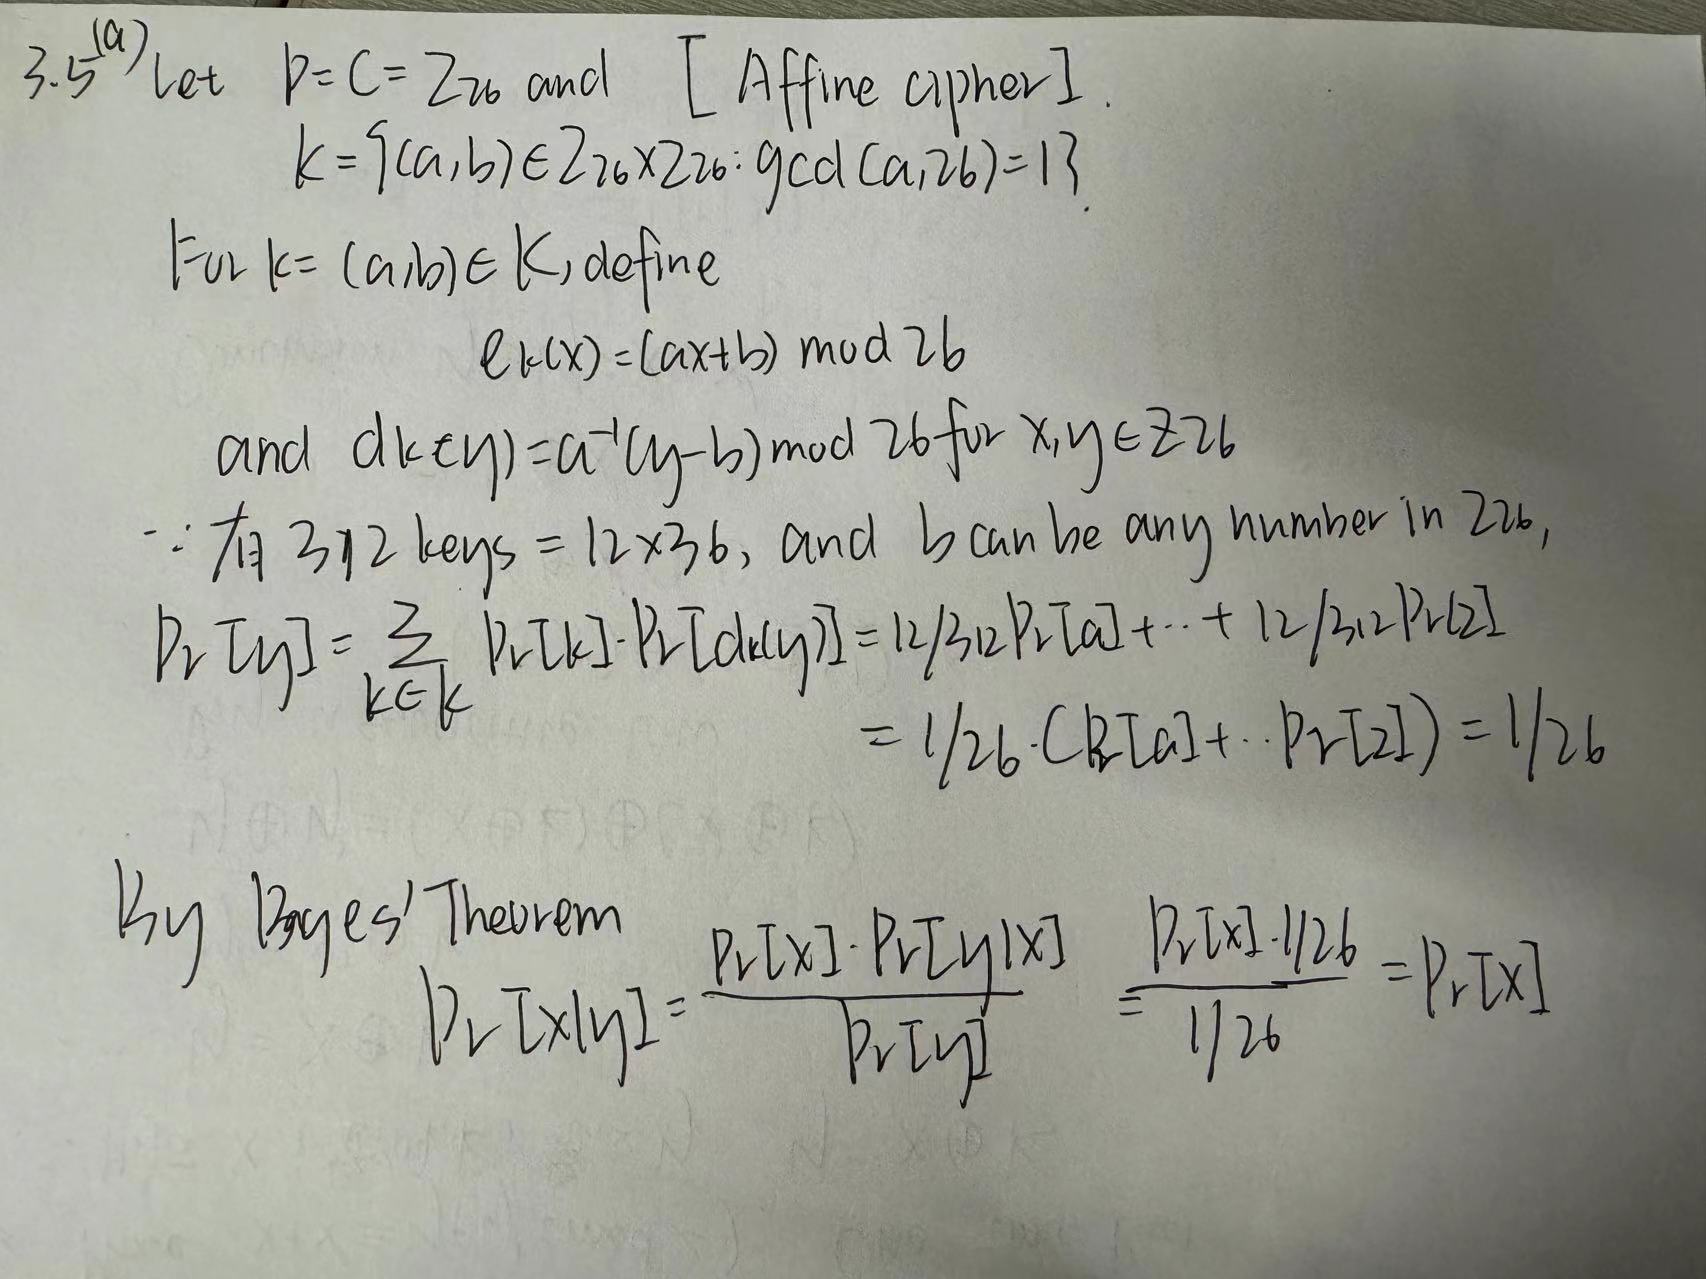 3.5(a) Let P=C=Z26 and [Affine cipher].
K={(a,b)∈Z26×Z26:gcd(a,26)=1}.
For k=(a,b)∈K, define
ek(x)=(ax+b) mod 26
and dk(y)=a⁻¹(y-b) mod 26 for x,y∈Z26
∵有312 keys=12×36, and b can be any number in Z26,
Pr[y]=∑ Pr[k]·Pr[dk(y)]=12/312Pr[a]+…+12/312Pr[z]
k∈K
=1/26·(Pr[a]+..Pr[z])=1/26
By Bayes' Theorem
Pr[x|y]=Pr[x]·Pr[y|x]/Pr[y]=Pr[x]·1/26/1/26=Pr[x]